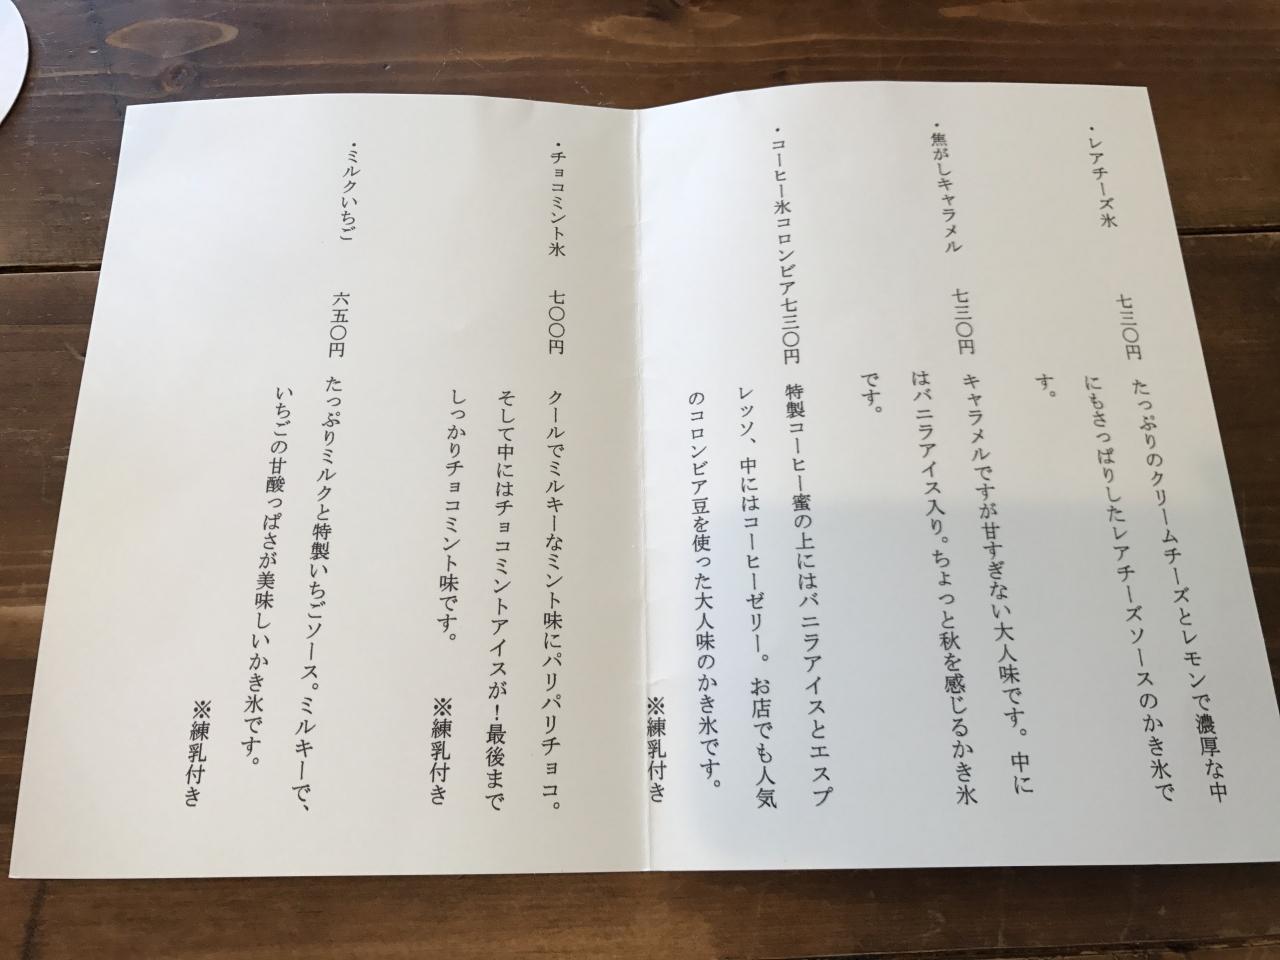 ・レアチーズ氷 七三〇円 たっぷりのクリームチーズとレモンで濃厚な中
にもさっぱりしたレアチーズソースのかき氷で
す。
・焦がしキャラメル 七三〇円 キャラメルですが甘すぎない大人味です。中に
はバニラアイス入り。ちょっと秋を感じるかき氷
です。
・コーヒー氷コロンビア七三〇円 特製コーヒー蜜の上にはバニラアイスとエスプ
レッソ、中にはコーヒーゼリー。お店でも人気
のコロンビア豆を使った大人味のかき氷です。
※練乳付き
・チョコミント氷 七〇〇円 クールでミルキーなミント味にパリパリチョコ。
そして中にはチョコミントアイスが！最後まで
しっかりチョコミント味です。 ※練乳付き
・ミルクいちご 六五〇円 たっぷりミルクと特製いちごソース。ミルキーで、
いちごの甘酸っぱさが美味しいかき氷です。
※練乳付き